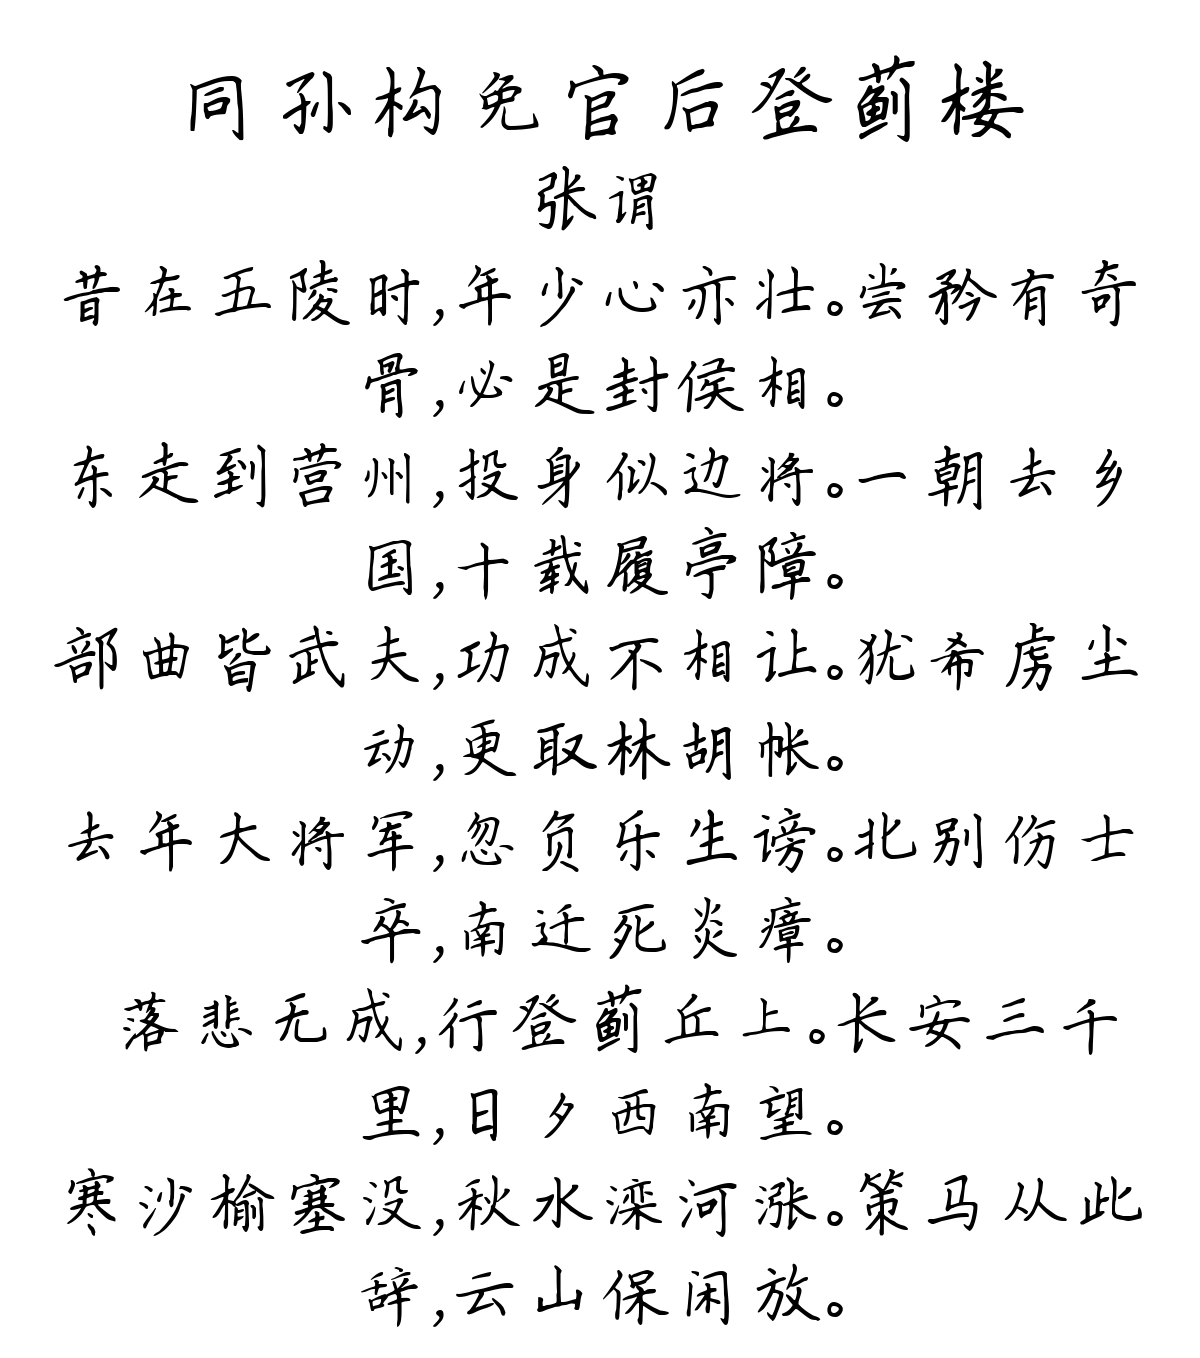 同孙构免官后登蓟楼
张谓
昔在五陵时,年少心亦壮。尝矜有奇
骨,必是封侯相。
东走到营州,投身似边将。一朝去乡
国,十载履亭障。
部曲皆武夫,功成不相让。犹希虏尘
动,更取林胡帐。
去年大将军,忽负乐生谤。北别伤士
卒,南迁死炎瘴。
落悲无成,行登蓟丘上。长安三千
里,日夕西南望。
寒沙榆塞没,秋水滦河涨。策马从此
辞,云山保闲放。